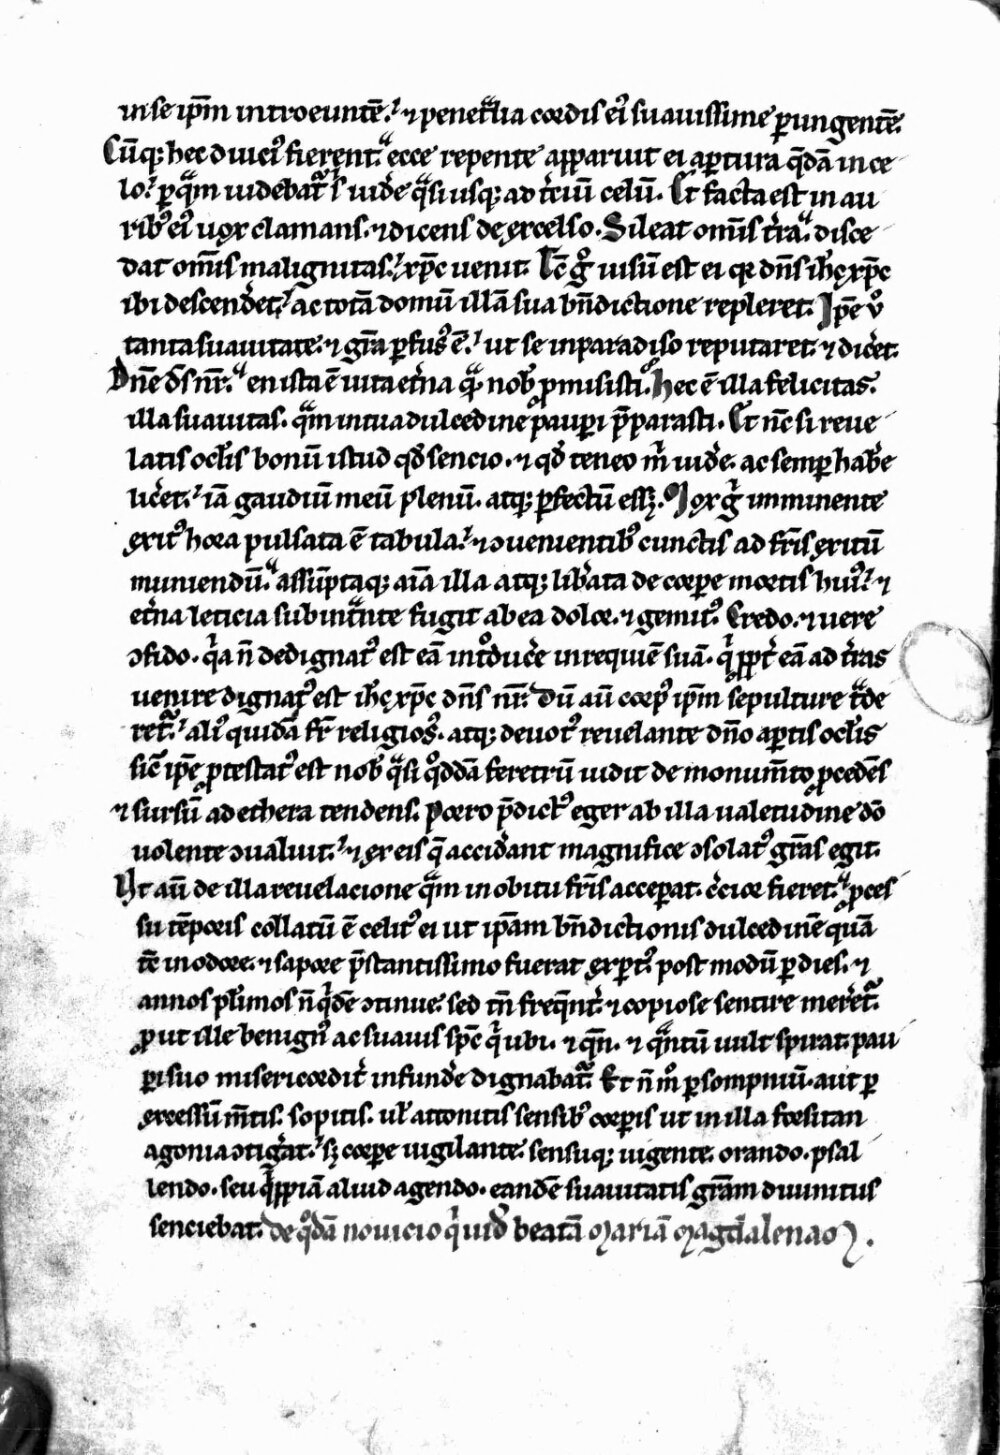 in se ip̄m introeuntē. ⁊ penetᵃlia cordis eiꝰ suauissime ꝑungentē.
Cūq; hec diuiciꝰ fierent. ecce repente apparuit ei aꝑtura q̄dā in ce
lo. ꝑ qᵃm uidebatᵘ sibi uidʼe qᵃsi usq; ad tʼciū celū. Et facta est in au
ribꝰ eiꝰ uox clamans. ⁊ dicens de excelso. Sileat om̄is tʼra. disce
dat om̄is malignitas. xp̄c uenit. Tc̄ gͦ uisū est ei qꝛ dn̄s ih̄c xp̄c
ibi descendʼet. ac totā domū illā sua bn̄dictione repleret. Ip̄e uͦ
tanta suauitate. ⁊ gr̄a ꝑfusꝰ ē. ut se in paradiso reputaret. ⁊ dicʼet.
Dn̄e ds̄ nr̄. en ista ē uita etʼna qᵃ nobꝰ ꝓmisisti. hec ē illa felicitas.
illa suauitas. qᵃm in tua dulcedine pauꝑi p̄parasti. Et nc̄ si reue
latis oclʼis bonū istud qd̓ sencio. ⁊ qd̓ teneo mͥ uidʼe. ac semꝑ habʼe
licʼet. iā gaudiū meū plenū. atq; ꝑfectū eēt. Mox gͥ imminente
exitꝰ hora pulsata ē tabula. ⁊ ꝯuenientibꝰ cunctis ad fr̄is exitū
muniendū. assūptaq; aīa illa atq; libʼata de corpe mortis huiꝰ. ⁊
etʼna leticia subintᵃnte fugit ab ea dolor. ⁊ gemitꝰ. Credo. ⁊ uere
ꝯfido. qͥa n̄ dedignatꝰ est eā intͦducʼe in requiē suā. qͥ ꝓptʼ eā ad tʼras
uenire dignatꝰ est ih̄c xp̄c dn̄s nr̄. Dū au̅ corpꝰ ip̄m sepulture tᵃde
retᵘ. aliꝰ quidā fr̄ religiosꝰ. atq; deuotꝰ reuelante dn̄o aꝑtis oclʼis
sic̄ ip̄e ꝓtestatꝰ est nobꝰ qᵃsi qͦddā feretrū uidit de monum̄to ꝓcedēs
⁊ sursū ad ethera tendens. Porro p̄dictꝰ eger ab illa ualetudine dō
uolente ꝯualuit. ⁊ ex eis q̄ accidʼant magnifice ꝯsolatꝰ gr̄as egit.
Ut au̅ de illa reuelacione qᵃm in obitu fr̄is acceꝑat. cʼcior fieret. ꝓces
su tēporis collatū ē celitꝰ ei ut ip̄am bn̄dictionis dulcedinē quā
tē in odore. ⁊ sapore p̄stantissimo fuerat exꝑtꝰ post modū ꝑ dies. ⁊
annos plʼimos n̄ qͥdē ꝯtinue. sed tn̄ freqn̄tʼ. ⁊ copiose sentire merʼetᵘ.
ꝓut ille benignꝰ ac suauis sp̄c qͥ ubi. ⁊ qn̄. ⁊ qᵃntū uult spirat. pau
ꝑi suo misericorditʼ infundʼe dignabatᵘ. Et n̄ mͦ ꝑ sompniū. aut ꝑ
excessū m̄tis. sopitis. ul̓ attonitis sensibꝰ corꝑis ut in illa forsitan
agonia ꝯtigʼat. sꝫ corpe uigilante. sensuq; uigente. orando. psal
lendo. seu qͥppiā aliud agendo. eandē suauitatis gr̄am diuinitus
senciebat. de qͦdā nouicio qͥ uid̓ beatā Mariā Magdalenam.